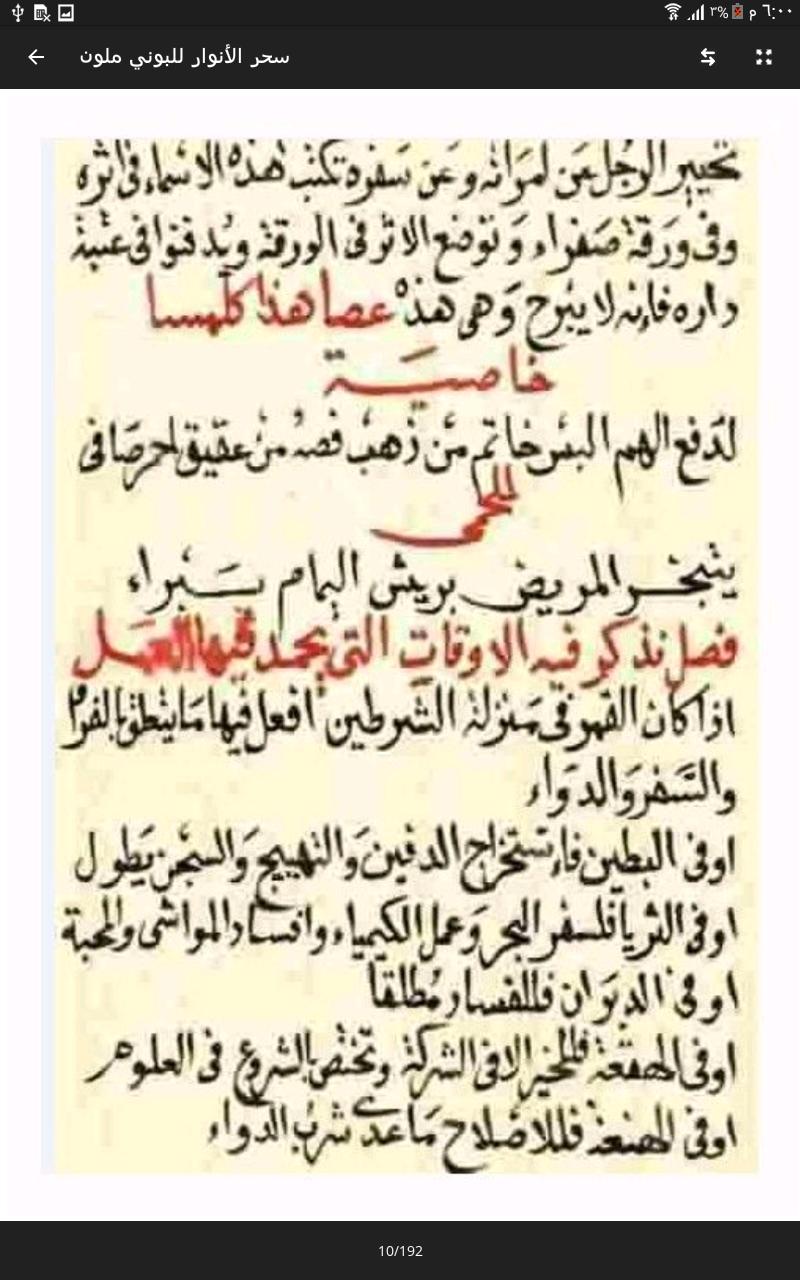 ٣% م ٦:٠٠
سحر الأنوار للبوني ملون
تحيير الرجل عن امراته وعن سفره تكتب هذه الاسماء فى اثره
وفى ورقة صفراء وتوضع الاثر فى الورقة ويدفنوا فى عتبة
داره فإنه لا يبرح وهى هذه عصا هذا كلهسا
خاصية
لدفع الهم البس خاتم من ذهب فصه من عقيق احر صافى
للحمى
يتبخر المريض بريش اليمام يبراء
فصل نذكر فيه الاوقات التى يحمد فيها العمل
اذا كان القمر فى منزلة الشرطين افعل فيها ما يتعلق بالفرح
والسفر والدواء
اوفى البطين فاستخراج الدفين والتهييج والسجن يطول
اوفى الثريا فلسفر البحر وعمل الكيمياء وافساد المواشى والمحبة
اوفى الدبوان فللفساد مطلقا
اوفى الهقعة فللخير الا فى الشركة وتختص بالشروع فى العلوم
اوفى الهنعة فللاصلاح ما عدى شرب الدواء
10/192